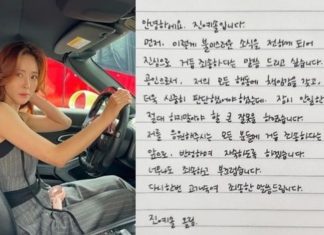 안녕하세요. 진예솔입니다.
먼저, 이렇게 불미스러운 소식을 전하게 되어
진심으로 거듭 죄송하다는 말씀 드리고 싶습니다.
공인으로서, 저의 모든 행동에 책임감을 갖고,
더욱 신중히 판단했어야 했는데, 잠시 안일한
절대 하지말아야 할 큰 잘못을 하였습니다.
저를 응원해주시는 모든 분들께 거듭 죄송하다는
앞으로, 반성하며 자숙하도록 하겠습니다.
너무나도 죄송하고 부끄럽습니다.
다시한번 고개숙여 죄송한 말씀드립니다.
진예솔 올림.